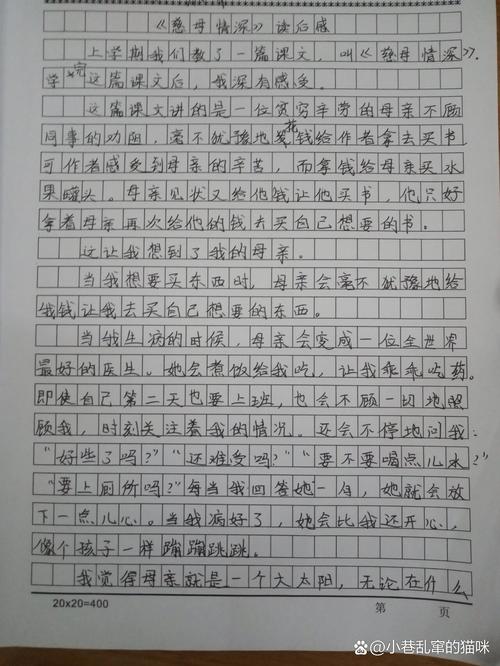 《慈母情深》读后感
上学期我们教了一篇课文,叫《慈母情深》.
学完这篇课文后,我深有感受。
这篇课文讲的是一位贫穷辛劳的母亲不顾
同事的劝阻,毫不犹豫地花钱给作者拿去买书
可作者感受到母亲的辛苦,而拿钱给母亲买水
果罐头。母亲见状又给他钱让他买书,他只好
拿着母亲再次给他的钱去买自己想要的书。
这让我想到了我的母亲。
当我想要买东西时,母亲会毫不犹豫地给
我钱让我去买自己想要的东西。
当我生病的时候,母亲会变成一位全世界
最好的医生。她会煮饭给我吃,让我乖乖吃药。
即使自己第二天也要上班,也会不顾一切地照
顾我,时刻关注着我的情况。还会不停地问我:
“好些了吗?”“还难受吗?”“要不要喝点儿水?”
“要上厕所吗?”每当我回答她一句,她就会放
下一点儿心。当我病好了,她会比我还开心,
像个孩子一样蹦蹦跳跳。
我觉得母亲就是一个大太阳,无论在什么
20x20=400
第 页
@小巷乱窜的猫咪